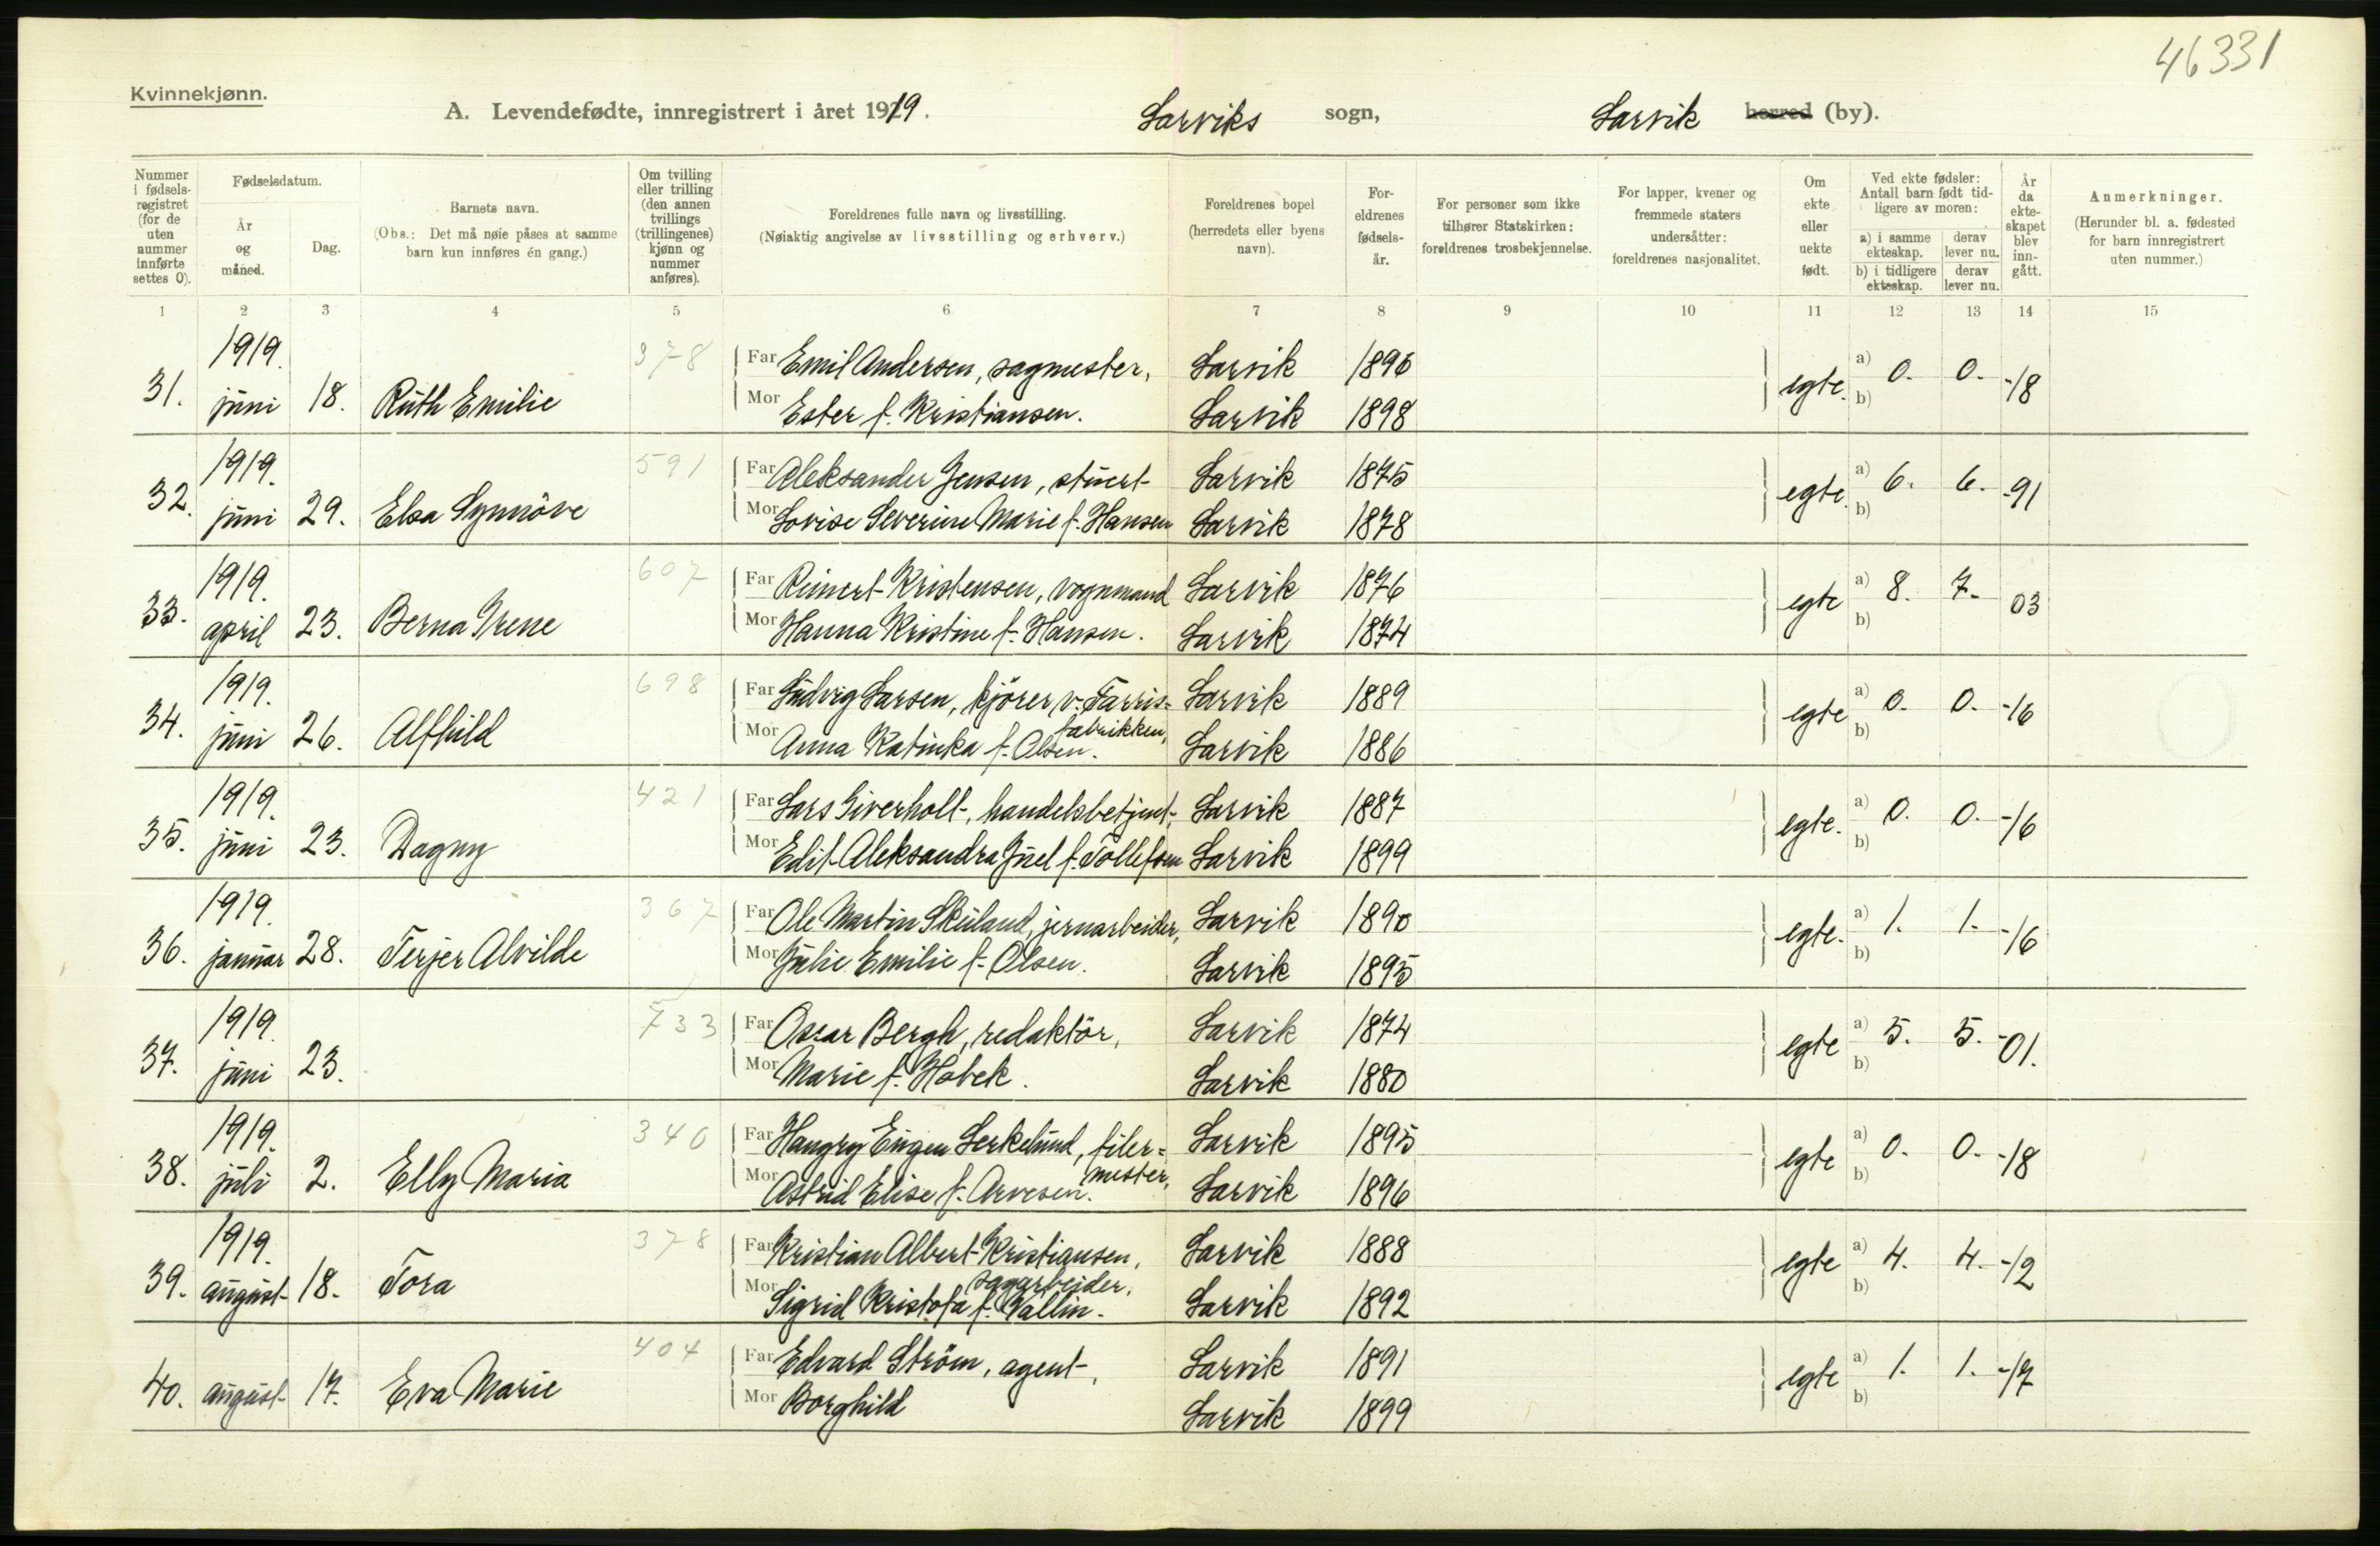 46331
Kvinnekjønn.
A. Levendefødte, innregistrert i året 1919. Larviks sogn, Larvik herred (by).
Nummer i fødselsregistret (for de uten nummer innførte settes 0).
Fødselsdatum.
År og måned.
Dag.
Barnets navn.
(Obs.: Det må nøie påses at samme barn kun innføres én gang.)
Om tvilling eller trilling (den annen tvillings (trillingenes) kjønn og nummer anføres).
Foreldrenes fulle navn og livsstilling.
(Nøiaktig angivelse av livsstilling og erhverv.)
Foreldrenes bopel (herredets eller byens navn).
Foreldrenes fødselsår.
For personer som ikke tilhører Statskirken: foreldrenes trosbekjennelse.
For lapper, kvener og fremmede staters undersåtter: foreldrenes nasjonalitet.
Om ekte eller uekte født.
Ved ekte fødsler: Antall barn født tidligere av moren:
a) i samme ekteskap. derav lever nu.
b) i tidligere ekteskap. derav lever nu.
År da ekteskapet blev inngått.
Anmerkninger.
(Herunder bl. a. fødested for barn innregistrert uten nummer.)
1 2 3 4 5 6 7 8 9 10 11 12 13 14 15
1919. 378 Far Emil Andersen, sagmester, Larvik 1896
31. juni 18. Ruth Emilie Mor Ester f. Kristiansen. Larvik 1898 egte. a) 0. 0. -18 b)
1919. 591 Far Aleksander Jensen, stuert Larvik 1875
32. juni 29. Elsa Synnöve Mor Lovise Severine Marie f. Hansen Larvik 1878 egte. a) 6. 6. -91 b)
1919. 607 Far Reinert Kristensen, vognmand Larvik 1876
33. april 23. Berna Irene Mor Hanna Kristine f. Hansen. Larvik 1874 egte a) 8. 7. 03 b)
1919. 698 Far Ludvig Larsen, kjörer v. Farris= Larvik 1889
fabrikken,
34. juni 26. Alfhild Mor Anna Katinka f. Olsen. Larvik 1886 egte a) 0. 0. -16 b)
1919. 421 Far Lars Siverholt, handelsbetjent, Larvik 1887
35. juni 23. Dagny Mor Edit Aleksandra Juel f. Tollefsen Larvik 1899 egte. a) 0. 0. -16 b)
1919. 367 Far Ole Martin Skuland, jernarbeider, Larvik 1890
36. januar 28. Terjer Alvilde Mor Julie Emilie f. Olsen. Larvik 1895 egte. a) 1. 1. -16 b)
1919. 733 Far Oscar Bergh, redaktör, Larvik 1874
37. juni 23. Mor Marie f. Holbek. Larvik 1880 egte a) 5. 5. -01. b)
1919. 340 Far Hangry Eugen Lerkelund, filer= Larvik 1895
mester,
38. juli 2. Elly Maria Mor Astrid Elise f. Arvesen. Larvik 1896 egte a) 0. 0. -18 b)
1919. 378 Far Kristian Albert Kristiansen, Larvik 1888
sagarbeider.
39. august 18. Tora Mor Sigrid Kristofa f. Vallin. Larvik 1892 egte a) 4. 4. -12 b)
404 Far Edvard Ström, agent, Larvik 1891
40. august 17. Eva Marie Mor Borghild Larvik 1899 egte a) 1. 1. -17 b)